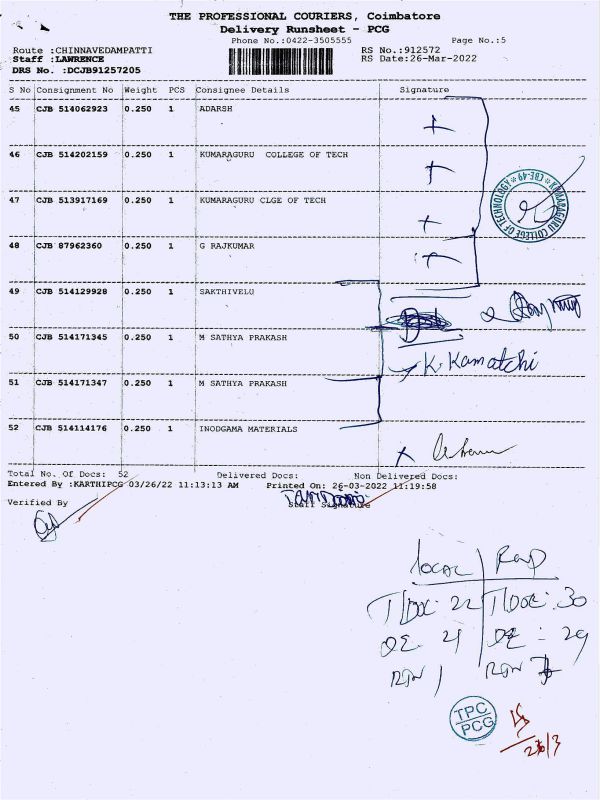 THE PROFESSIONAL COURIERS, Coimbatore
Delivery Runsheet - PCG
Phone No.:0422-3505555
Page No.:5
Route :CHINNAVEDAMPATTI
RS No.:912572
Staff :LAWRENCE
RS Date:26-Mar-2022
DRS No. :DCJB91257205
S No Consignment No Weight PCS Consignee Details Signature
45 CJB 514062923 0.250 1 ADARSH
46 CJB 514202159 0.250 1 KUMARAGURU COLLEGE OF TECH
47 CJB 513917169 0.250 1 KUMARAGURU CLGE OF TECH
KUMARAGURU COLLEGE OF TECHNOLOGY * CBE-49 *
48 CJB 87962360 0.250 1 G RAJKUMAR
49 CJB 514129928 0.250 1 SAKTHIVELU
50 CJB 514171345 0.250 1 M SATHYA PRAKASH
K. Kamatchi
51 CJB 514171347 0.250 1 M SATHYA PRAKASH
52 CJB 514114176 0.250 1 INODGAMA MATERIALS
Total No. Of Docs: 52 Delivered Docs: Non Delivered Docs:
Entered By :KARTHIPCG 03/26/22 11:13:13 AM Printed On: 26-03-2022 11:19:58
Verified By Staff Signature
LOCAL
T/DOC: 22 T/DOC: 30
21 29
RTN 1 RTN
TPC
PCG